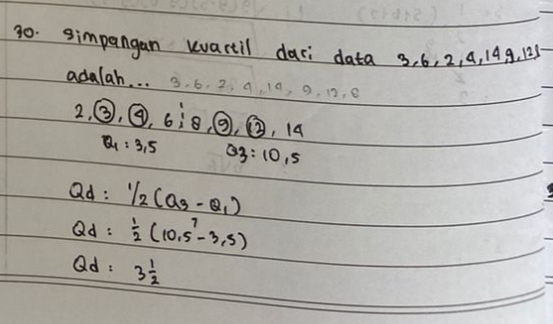 30. Simpangan kuartil dari data 3,6,2,4,14,9,12,8
adalah... 3,6,2,4,14,9,12,8
2,3,4,6;8,9,12,14
Q1 : 3,5 Q3 : 10,5
Qd : 1/2 (Q3 - Q1)
Qd : 1/2 (10,5 - 3,5)
Qd : 3 1/2